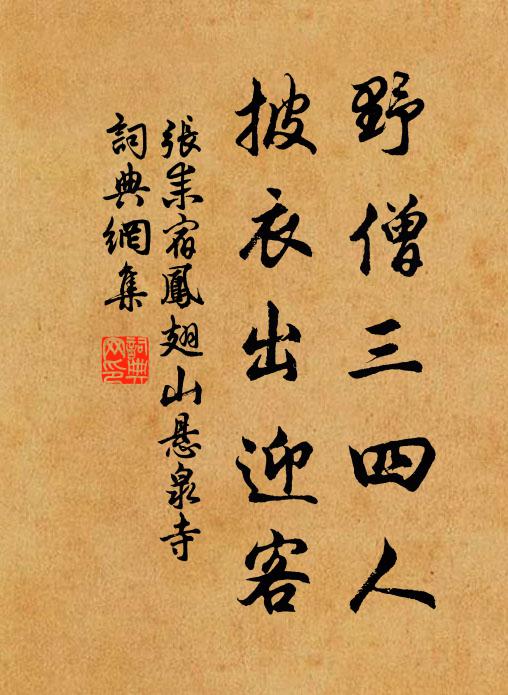 野僧三四人
披衣出迎客
張耒宿鳳翅山懸泉寺
詞典網集
詞典網印